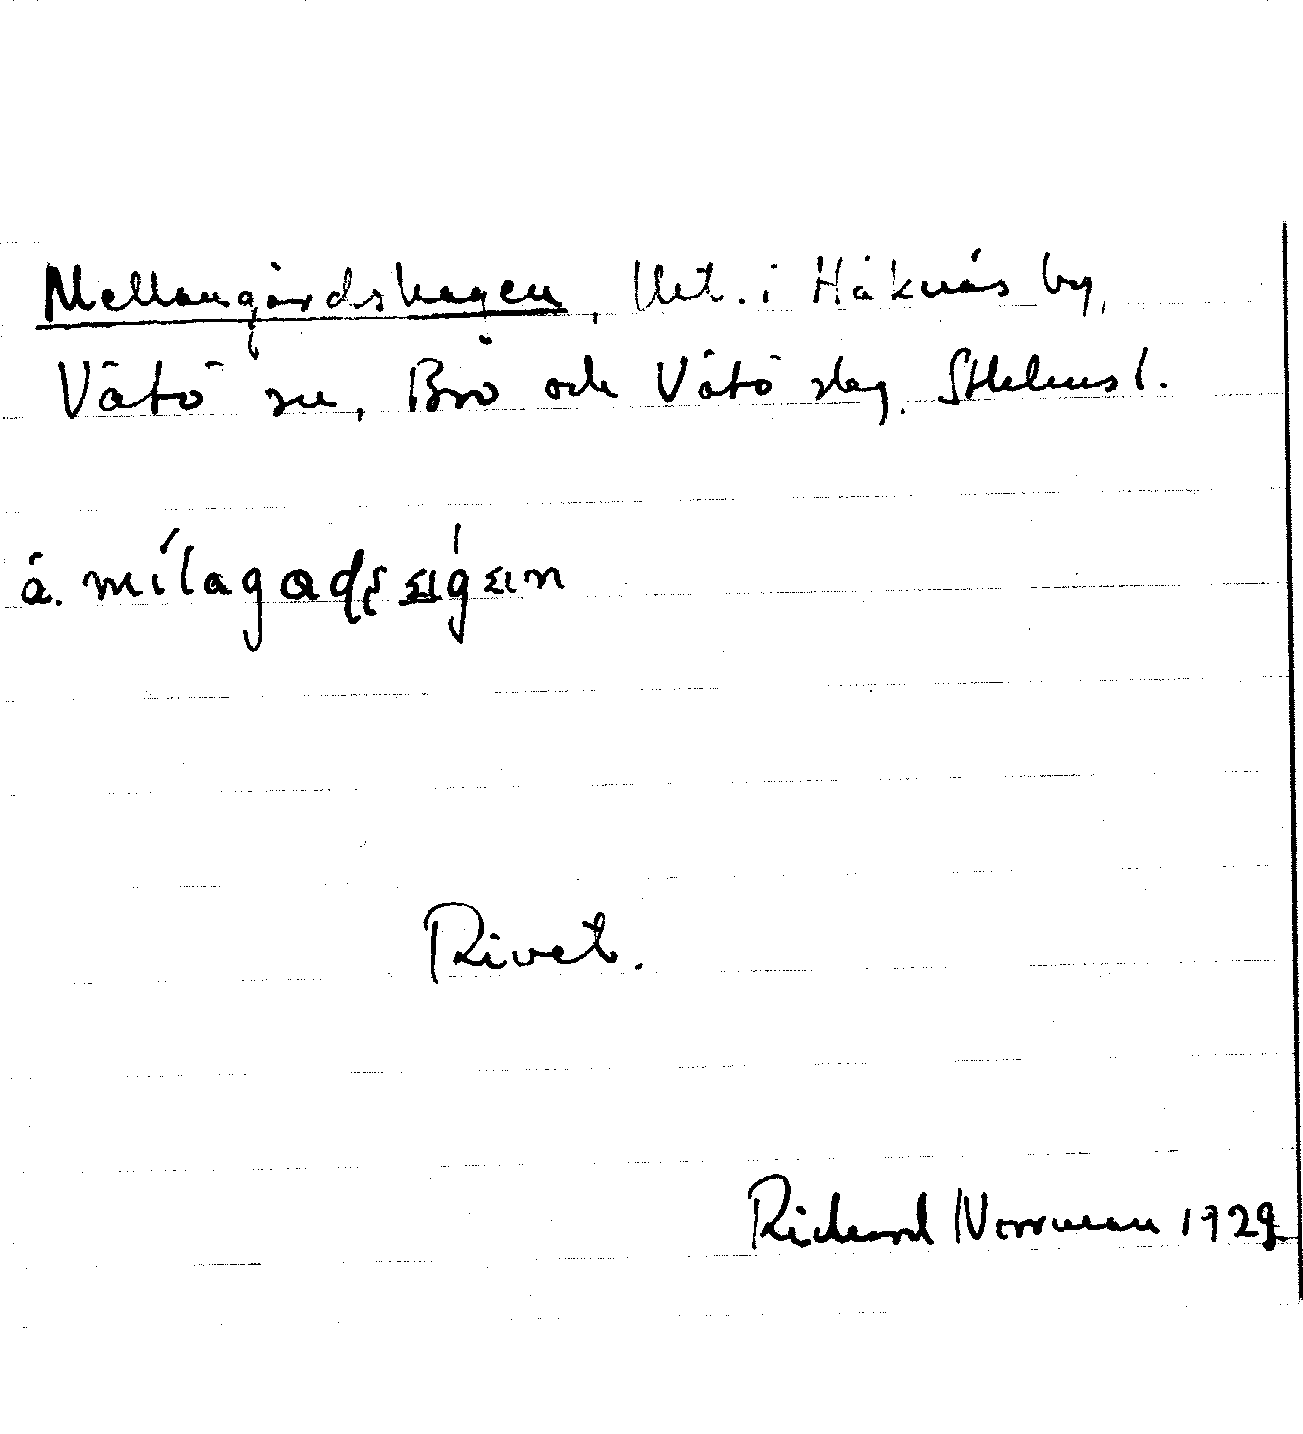 Mellangårdshagen, Utl. i Håknäs by,
Vätö sn, Bro och Vätö slag. Sthlms l.
å.
Rivet.
Richard Norrman 1929